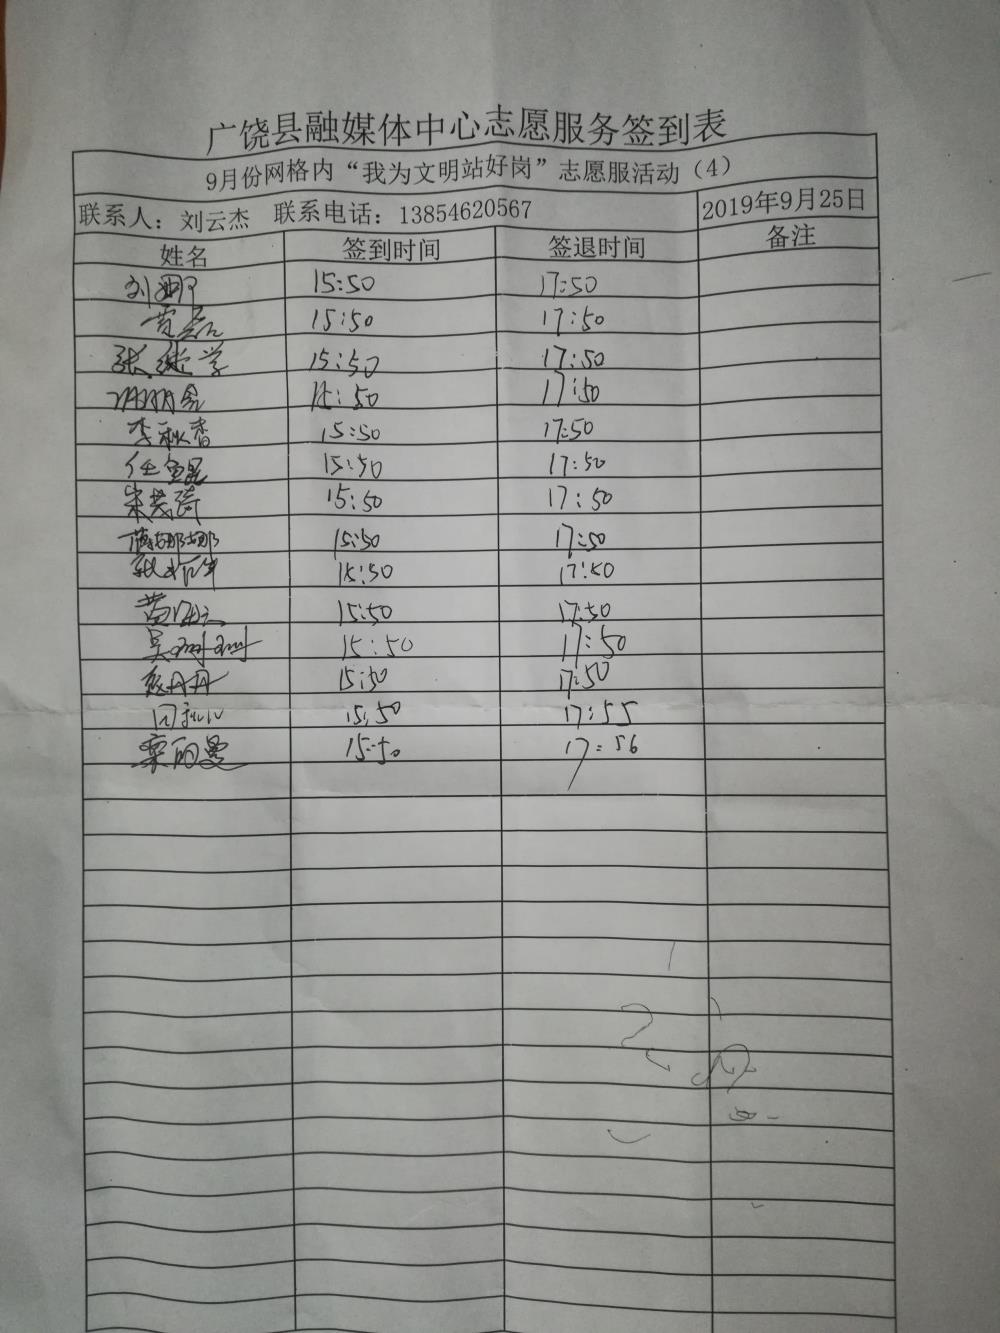 广饶县融媒体中心志愿服务签到表
9月份网格内“我为文明站好岗”志愿服活动（4）
联系人：刘云杰 联系电话：13854620567 2019年9月25日
姓名 签到时间 签退时间 备注
刘娜 15:50 17:50
贾磊 15:50 17:50
张继学 15:50 17:50
15:50 17:50
李秋香 15:50 17:50
任 15:50 17:50
宋茂琦 15:50 17:50
娜娜 15:50 17:50
15:50 17:50
黄 15:50 17:50
吴珊珊 15:50 17:50
丹丹 15:50 17:50
15:50 17:55
栾雨曼 15:50 17:56